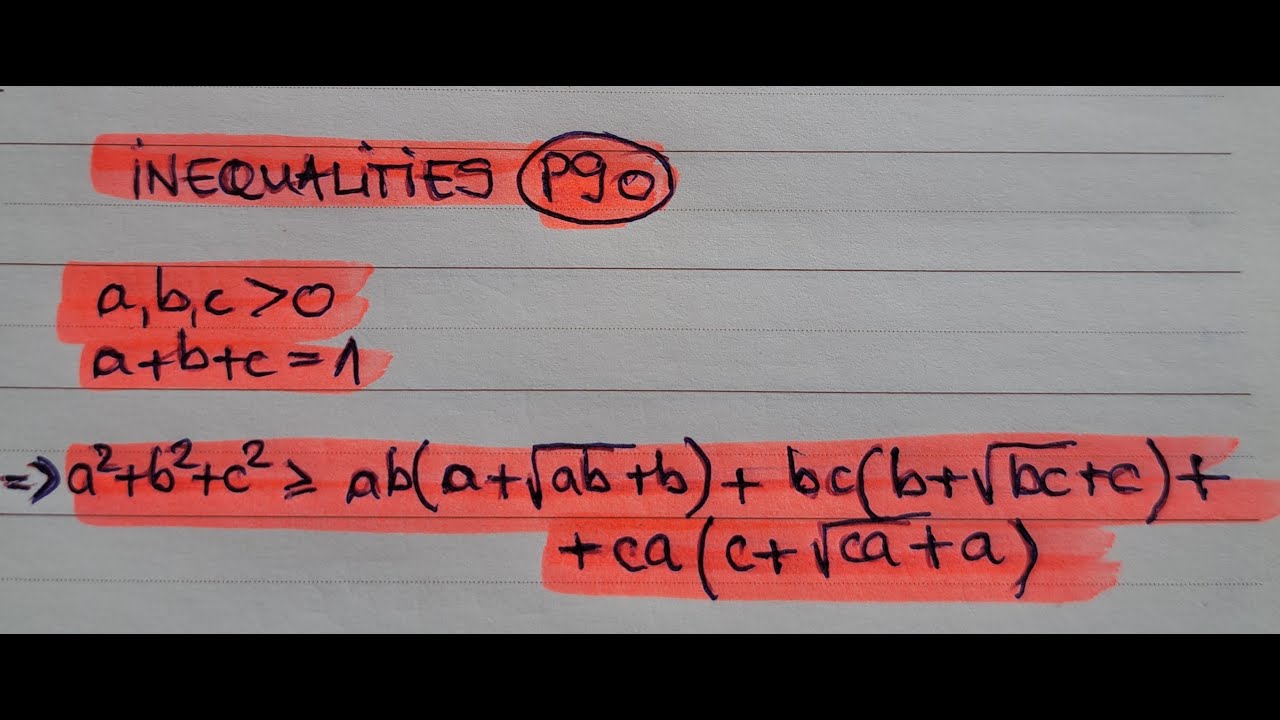 iNEQUALiTiES P90
a,b,c>0
a+b+c=1
⇒a²+b²+c² ≥ ab(a+√ab+b)+bc(b+√bc+c)+
+ca(c+√ca+a)